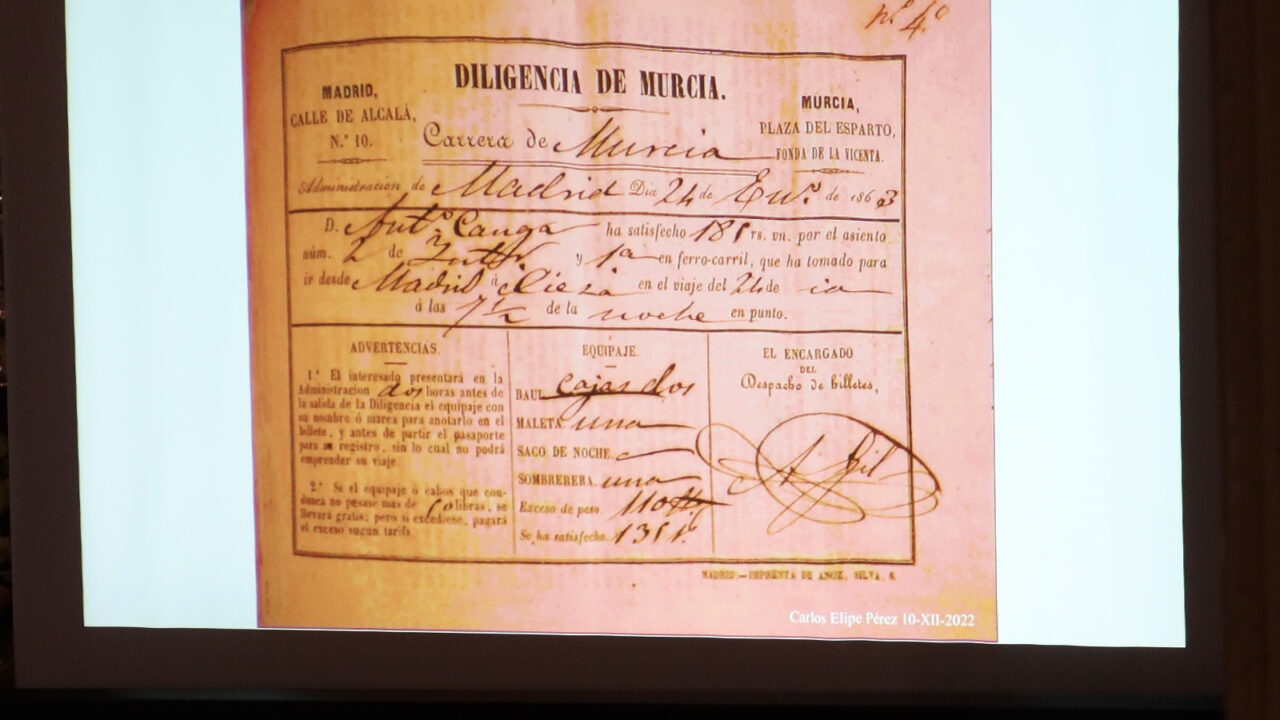 n.º 4º
DILIGENCIA DE MURCIA.
MADRID,
CALLE DE ALCALÁ,
N.º 10.
MURCIA,
PLAZA DEL ESPARTO,
FONDA DE LA VICENTA.
Carrera de Murcia
Administracion de Madrid Dia 24 de En.º de 1863
D. Ant.º Canga ha satisfecho 181 rs. vn. por el asiento
núm. 2 de y 1ª en ferro-carril, que ha tomado para
ir desde Madrid á Cieza en el viaje del 24 de
á las 7 1/2 de la noche en punto.
ADVERTENCIAS.
1.ª El interesado presentará en la
Administracion dos horas antes de
la salida de la Diligencia el equipaje con
su nombre ó marca para anotarlo en el
billete, y antes de partir el pasaporte
para su registro, sin lo cual no podrá
emprender su viaje.
2.ª Si el equipaje ó cabos que con-
duzca no pesase mas de libras, se
llevará gratis; pero si excediese, pagará
el exceso segun tarifa.
EQUIPAJE.
BAUL cajas dos
MALETA una
SACO DE NOCHE.
SOMBRERERA. una
Exceso de peso. 110
Se ha satisfecho.
EL ENCARGADO
DEL
Despacho de billetes,
A. Gil
MADRID:—IMPRENTA DE ANOZ, SILVA, 6.
Carlos Elipe Pérez 10-XII-2022